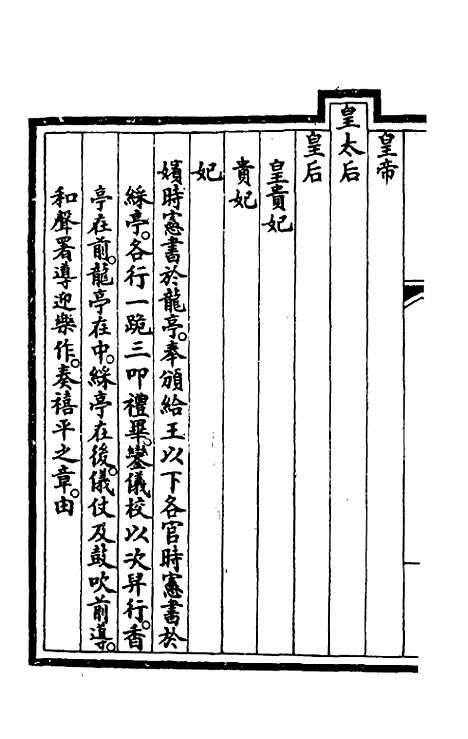 皇帝
皇太后
皇后
皇貴妃
貴妃
妃
嬪時憲書於龍亭。奉頒給王以下各官時憲書於
綵亭。各行一跪三叩禮畢。鑾儀校以次舁行。香
亭在前。龍亭在中。綵亭在後。儀仗及鼓吹前導。
和聲署導迎樂作。奏禧平之章。由